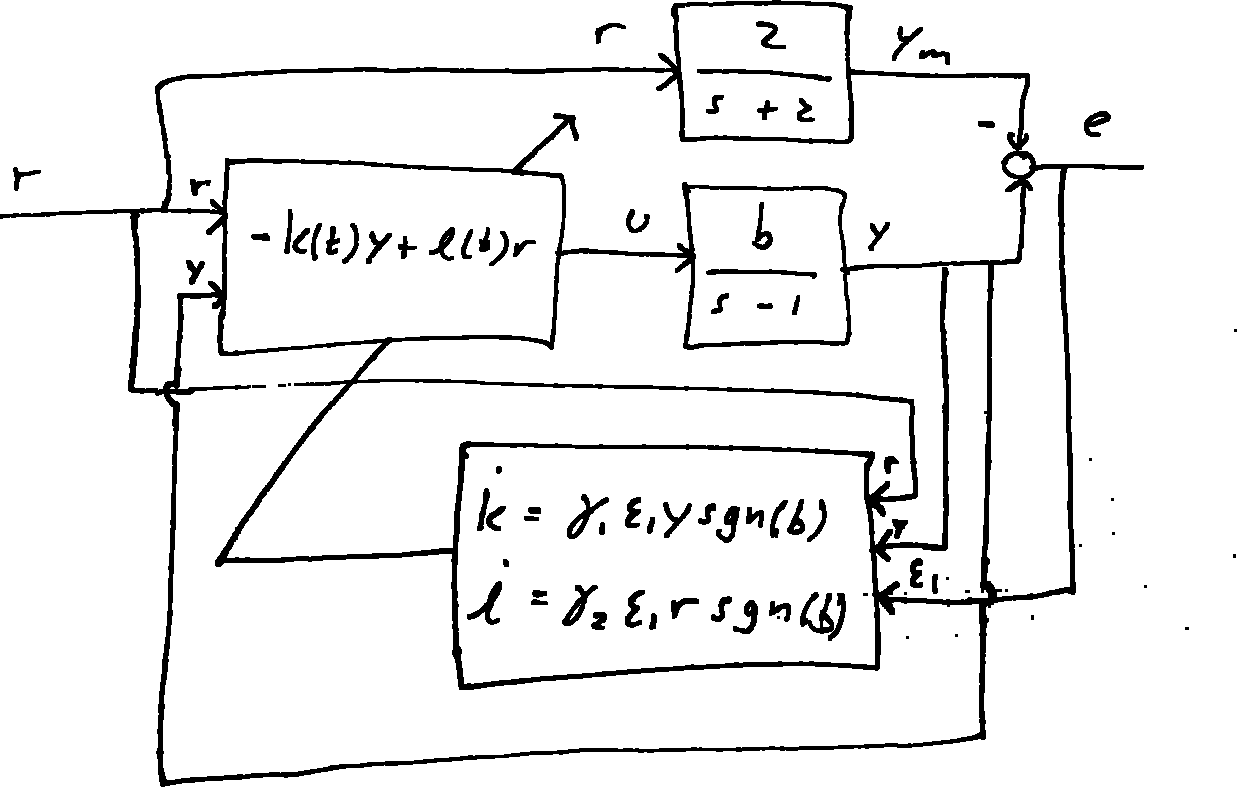 r
2
s + 2
y_m
-
e
r
r
y
-k(t)y + l(t)r
u
b
s - 1
y
k̇ = γ₁ ε₁ y sgn(b)
l̇ = γ₂ ε₁ r sgn(b)
r
y
ε₁